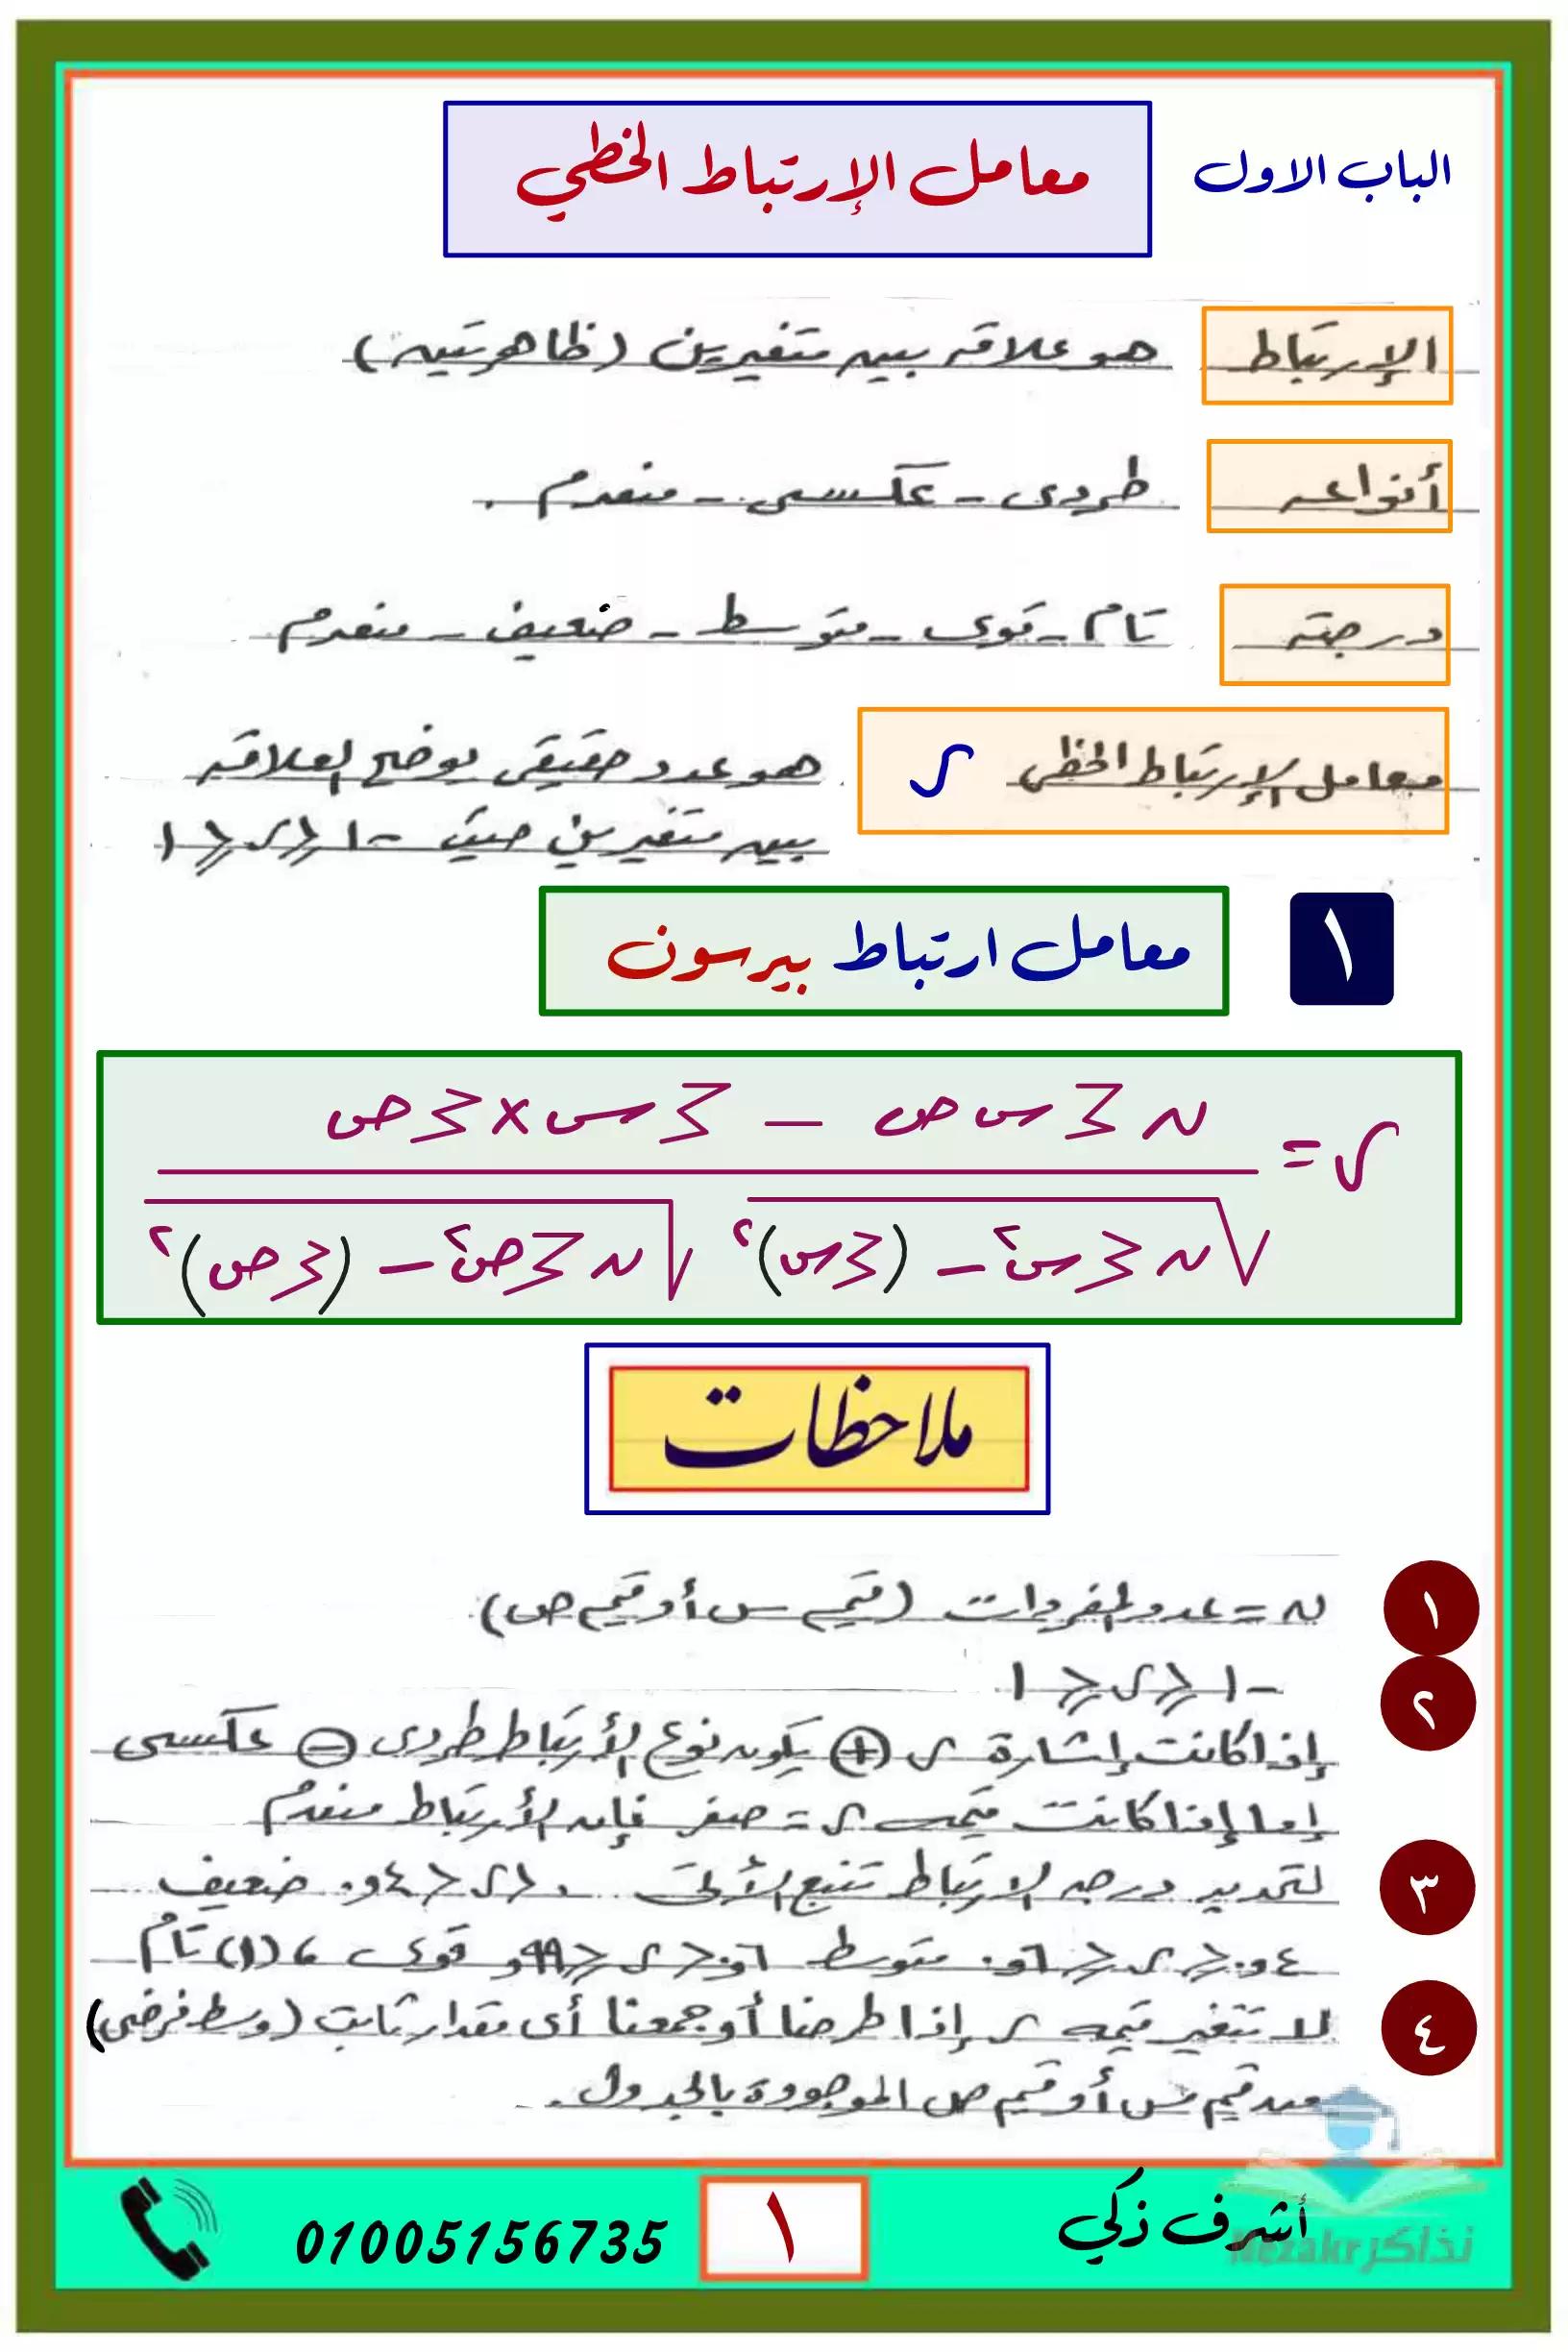 الباب الاول
معامل الإرتباط الخطي
الإرتباط هو علاقة بين متغيرين (ظاهرتين)
أنواعه طردى - عكسى - منعدم .
درجته تام - قوى - متوسط - ضعيف - منعدم
معامل الإرتباط الخطى ر هو عدد حقيقى يوضح العلاقة
بين متغيرين حيث -١ ≤ ر ≤ ١
١ معامل ارتباط بيرسون
ر = (ن ∑ س ص − ∑ س × ∑ ص) / (√(ن ∑ س² − (∑ س)²) √(ن ∑ ص² − (∑ ص)²))
ملاحظات
١ ن = عدد المفردات (قيم س أو قيم ص)
٢ -١ ≤ ر ≤ ١
إذا كانت إشارة ر (+) يكون نوع الأرتباط طردى (−) عكسى
إما إذا كانت قيمة ر = صفر فإن الأرتباط منعدم
٣ لتحديد درجه الارتباط نتبع الأتى ٠ < ر < ٤و٠ ضعيف
٤و٠ ≤ ر ≤ ٦و٠ متوسط ٦و٠ < ر ≤ ٩٩و قوى ، (١) تام
٤ لا تتغير قيمه ر إذا طرحنا أو جمعنا أى مقدار ثابت (وسط فرضى)
من قيم س أو قيم ص الموجودة بالجدول .
أشرف زكي
١
01005156735
نذاكر Nezakr